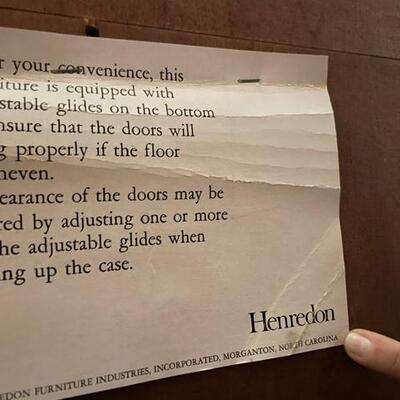 r your convenience, this
iture is equipped with
stable glides on the bottom
nsure that the doors will
g properly if the floor
neven.
earance of the doors may be
red by adjusting one or more
he adjustable glides when
ng up the case.
Henredon
EDON FURNITURE INDUSTRIES, INCORPORATED, MORGANTON, NORTH CAROLINA